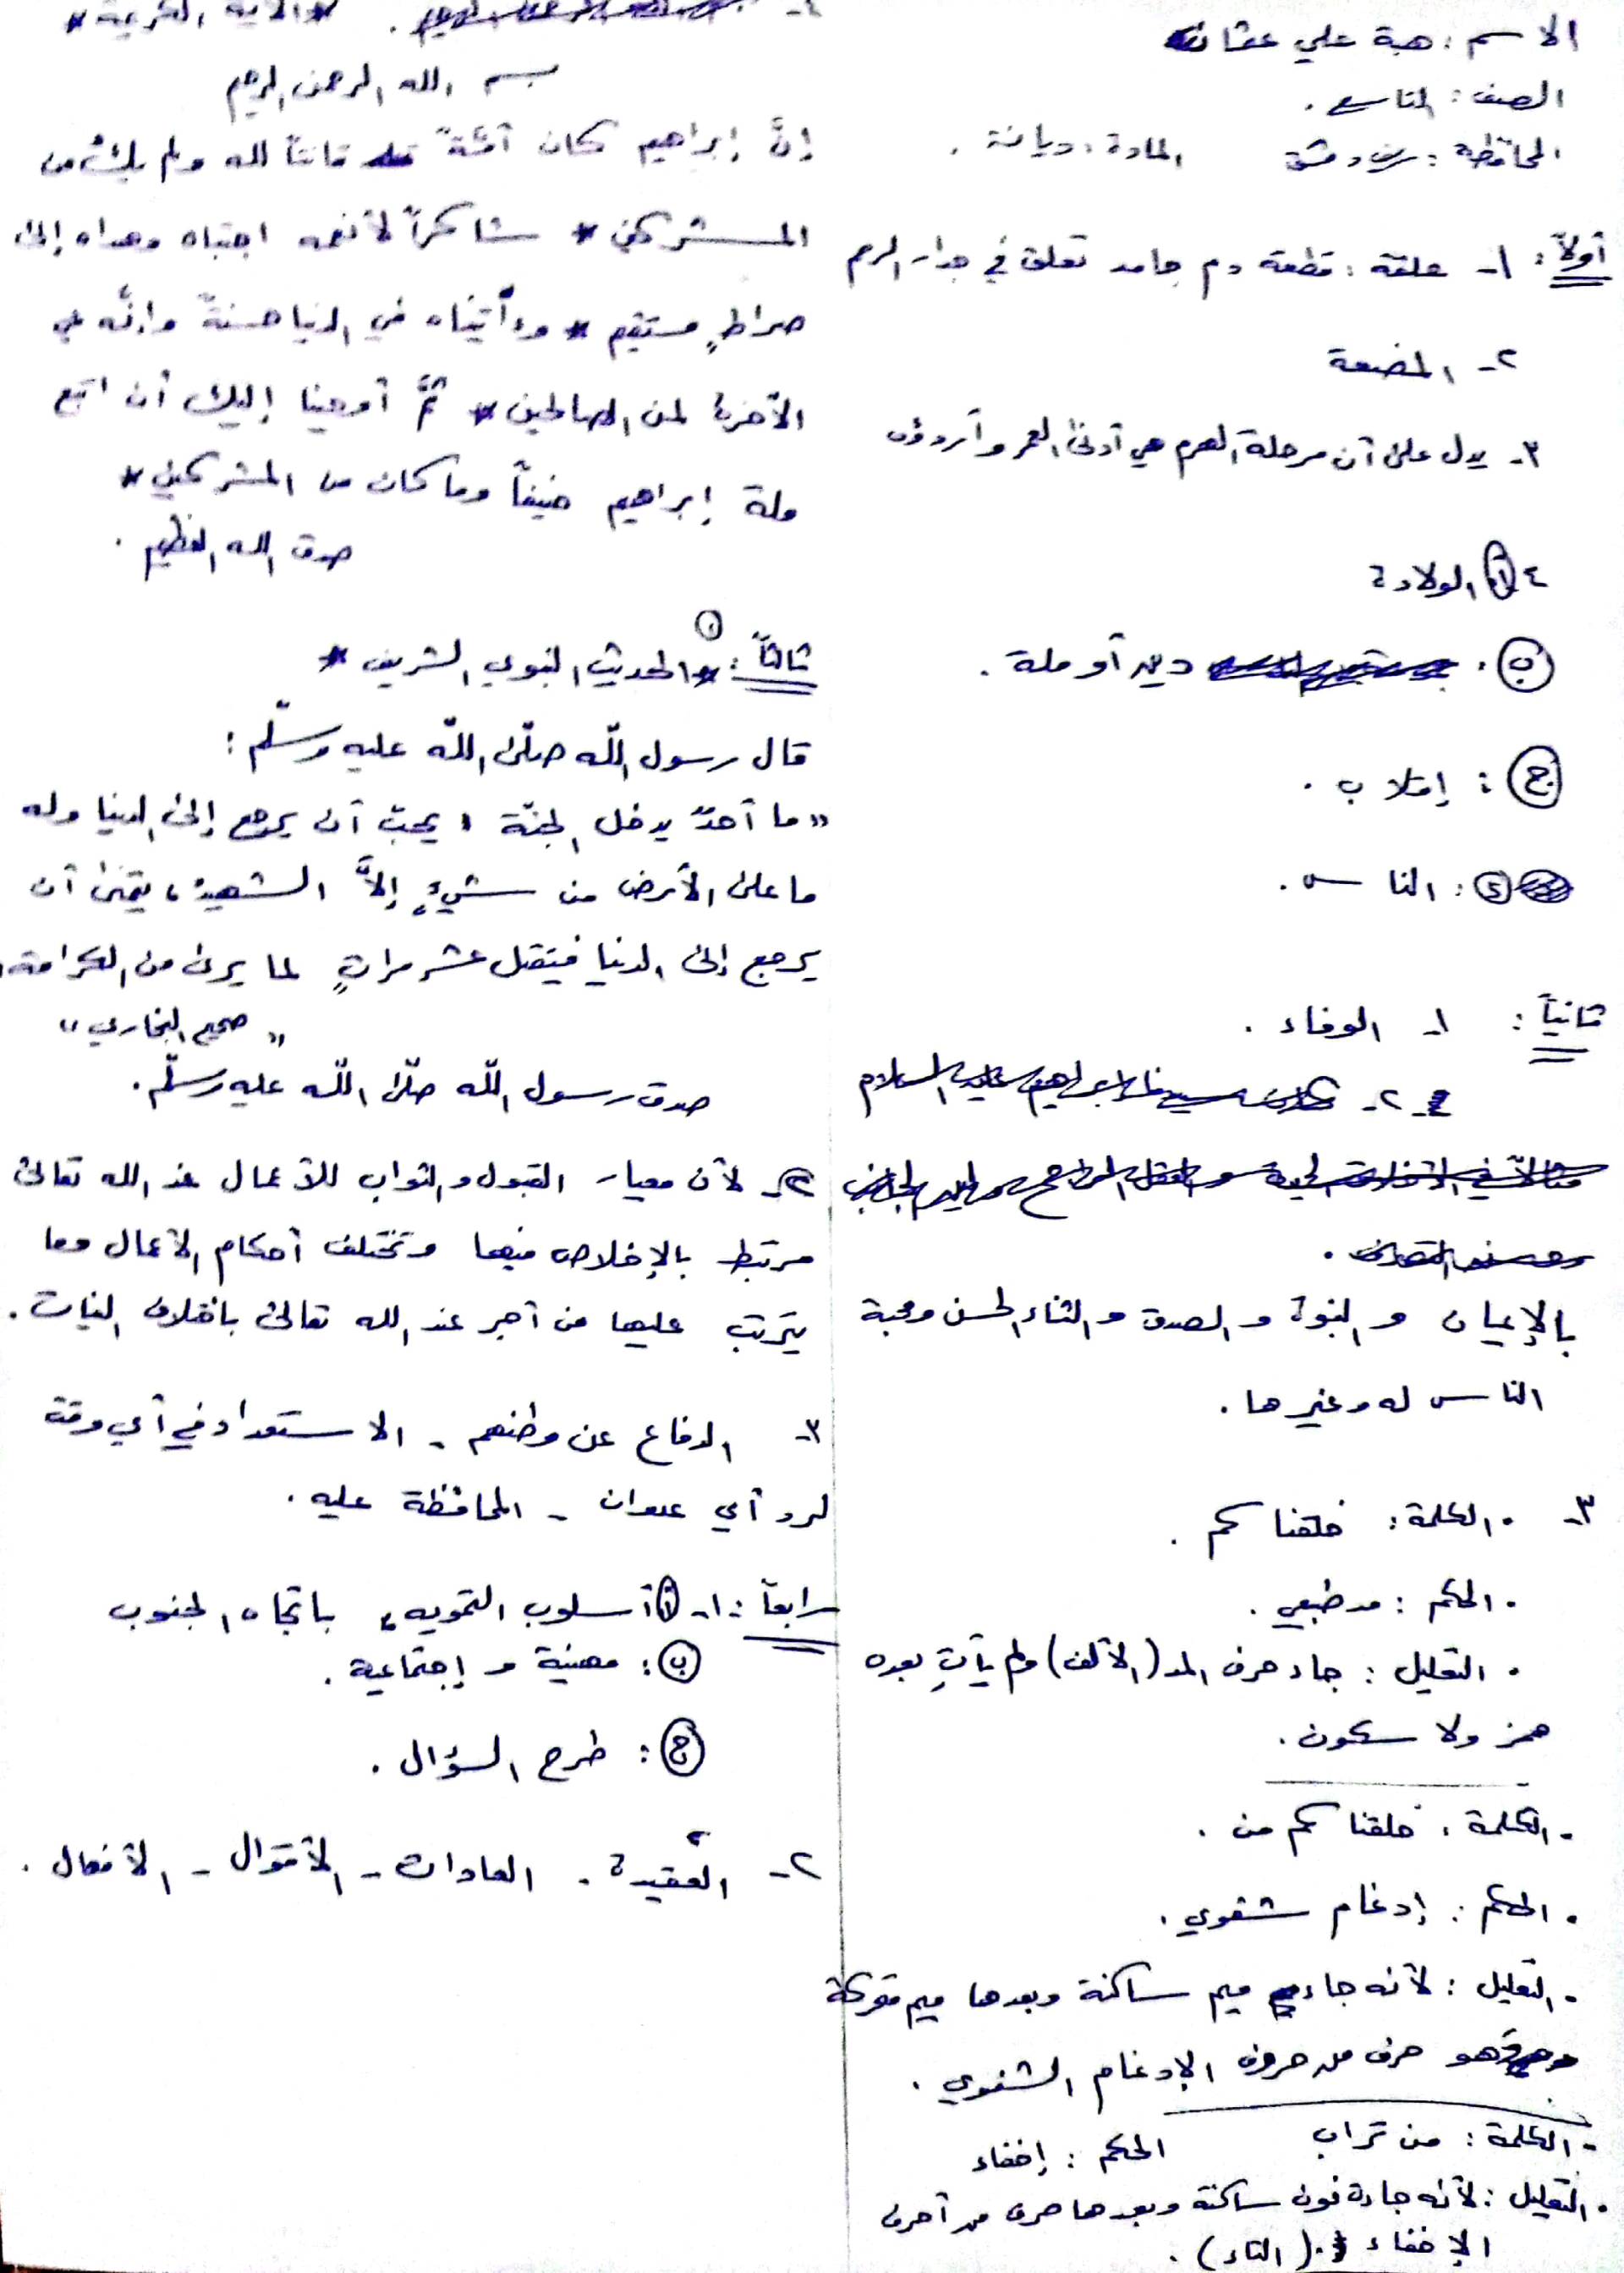 الاسم : هبة علي عثمان
الصف : التاسع .
المحافظة : ريف دمشق المادة : ديانة .
أولاً : ١- علقة : قطعة دم جامد تعلق في جدار الرحم
٢- المضغة
٣- يدل على أن مرحلة الهرم هي أدنى العمر وأردؤه
٤ أ الولادة
ب : دين أو ملة .
ج : إقلاب .
د : الناس .
ثانياً : ١- الوفاء .
٢-
بالإيمان و النبوة و الصدق و الثناء الحسن ومحبة
الناس له وغيرها .
٣- . الكلمة : خلقناكم .
. الحكم : مد طبيعي .
. التعليل : جاء حرف المد (الألف) ولم يأتِ بعده
همز ولا سكون .
. الكلمة : خلقناكم من .
. الحكم : إدغام شفوي .
. التعليل : لأنه جاء ميم ساكنة وبعدها ميم متحركة
وهو حرف من حروف الإدغام الشفوي .
. الكلمة : من تراب الحكم : إخفاء
. التعليل : لأنه جاءت نون ساكنة وبعدها حرف من أحرف
الإخفاء (التاء) .
٤- * الآية الكريمة *
بسم الله الرحمن الرحيم
إنَّ إبراهيم كان أمّةً قانتاً لله ولم يكُ من
المشركين * شاكراً لأنعمه اجتباه وهداه إلى
صراطٍ مستقيم * وءأتيناه في الدنيا حسنةً وإنّه في
الآخرة لمن الصالحين * ثمَّ أوحينا إليك أن اتبع
ملة إبراهيم حنيفاً وما كان من المشركين *
صدق الله العظيم .
ثالثاً : ١ * الحديث النبوي الشريف *
قال رسول الله صلّى الله عليه وسلّم :
" ما أحدٌ يدخل الجنّة ، يحبّ أن يرجع إلى الدنيا وله
ما على الأرض من شيءٍ إلاَّ الشهيدُ ، يتمنى أن
يرجع إلى الدنيا فيقتل عشر مراتٍ لما يرى من الكرامة
" صحيح البخاري "
صدق رسول الله صلّى الله عليه وسلّم .
٢- لأن معيار القبول و الثواب للأعمال عند الله تعالى
مرتبط بالإخلاص فيها وتختلف أحكام الأعمال وما
يترتب عليها من أجر عند الله تعالى باختلاف النيات .
٣- الدفاع عن وطنهم - الاستعداد في أي وقت
لرد أي عدوان - المحافظة عليه .
رابعاً : ١- أ أسلوب التمويه ، باتجاه الجنوب
ب : مهنية و إجتماعية .
ج : طرح السؤال .
٢- العقيدة . العادات - الأقوال - الأفعال .